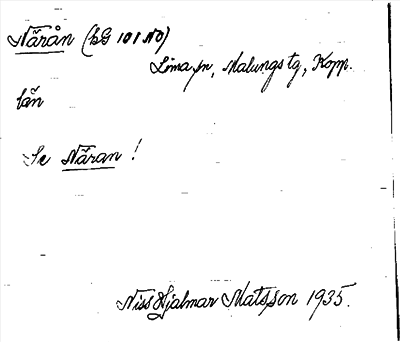 Nårån (bG 101 NO)
Lima sn, Malungs tg, Kopp.
län
Se Nåran !
Niss Hjalmar Matsson 1935.